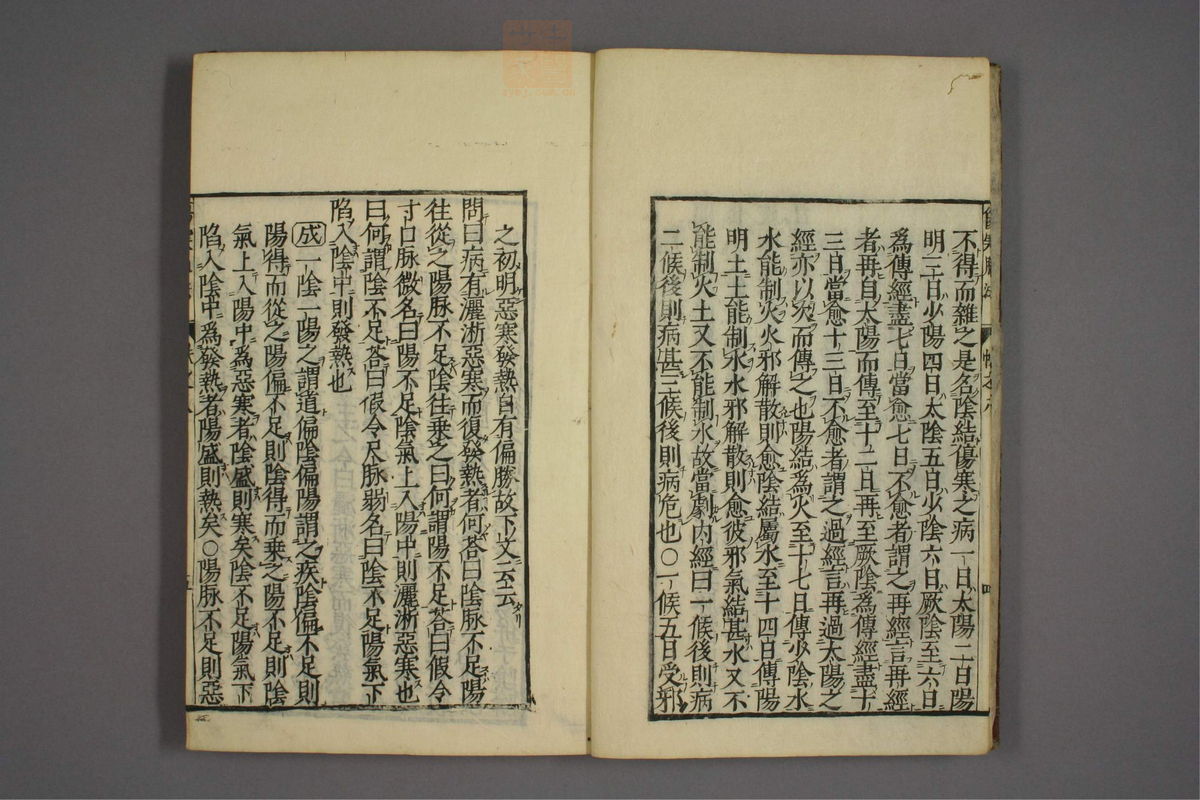 不得而雜之是名陰結傷寒之病一日太陽二日陽
明三日少陽四日太陰五日少陰六日厥陰至六日
為傳經盡七日當愈七日不愈者謂之再經言再經
者再自太陽而傳至十二日再至厥陰為傳經盡十
三日當愈十三日不愈者謂之過經言再過太陽之
經亦以次而傳之也陽結為火至十七日傳少陰水
水能制火火邪解散則愈陰結屬水至十四日傳陽
明土土能制水水邪解散則愈彼邪氣結甚水又不
能制火土又不能制水故當劇內經曰一候後則病
二候後則病甚三候後則病危也〇一候五日受邪
之初明惡寒發熱自有偏勝故下文云云
問曰病有灑淅惡寒而復發熱者何荅曰陰脉不足陽
往從之陽脉不足陰往乗之曰何謂陽不足荅曰假令
寸口脉微名曰陽不足陰氣上入陽中則灑淅惡寒也
曰何謂陰不足荅曰假令尺脉弱名曰陰不足陽氣下
陷入陰中則發熱也
成一陰一陽之謂道偏陰偏陽謂之疾陰偏不足則
陽得而從之陽偏不足則陰得而乗之陽不足則陰
氣上入陽中為惡寒者陰盛則寒矣陰不足陽氣下
陷入陰中為發熱者陽盛則熱矣〇陽脉不足則惡